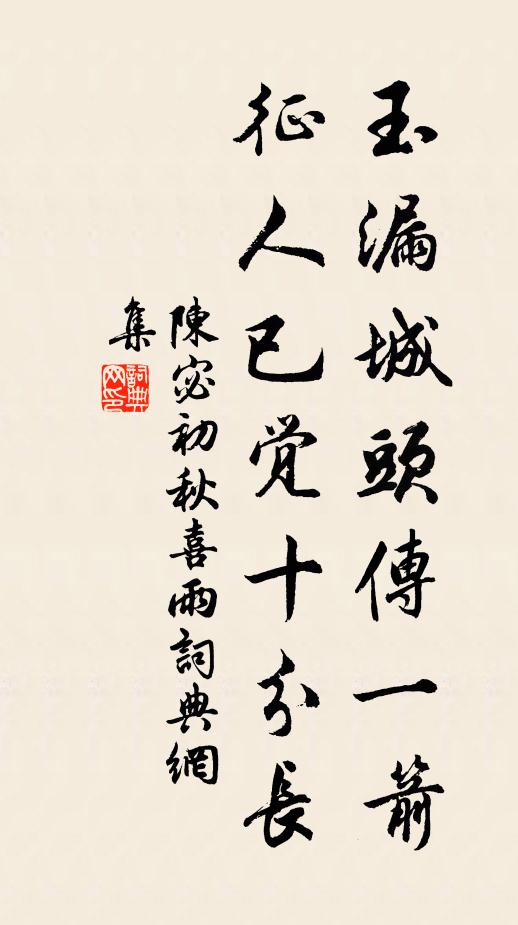 玉漏城頭傳一箭
征人已覺十分長
陳宓初秋喜雨詞典網
集
詞典網印